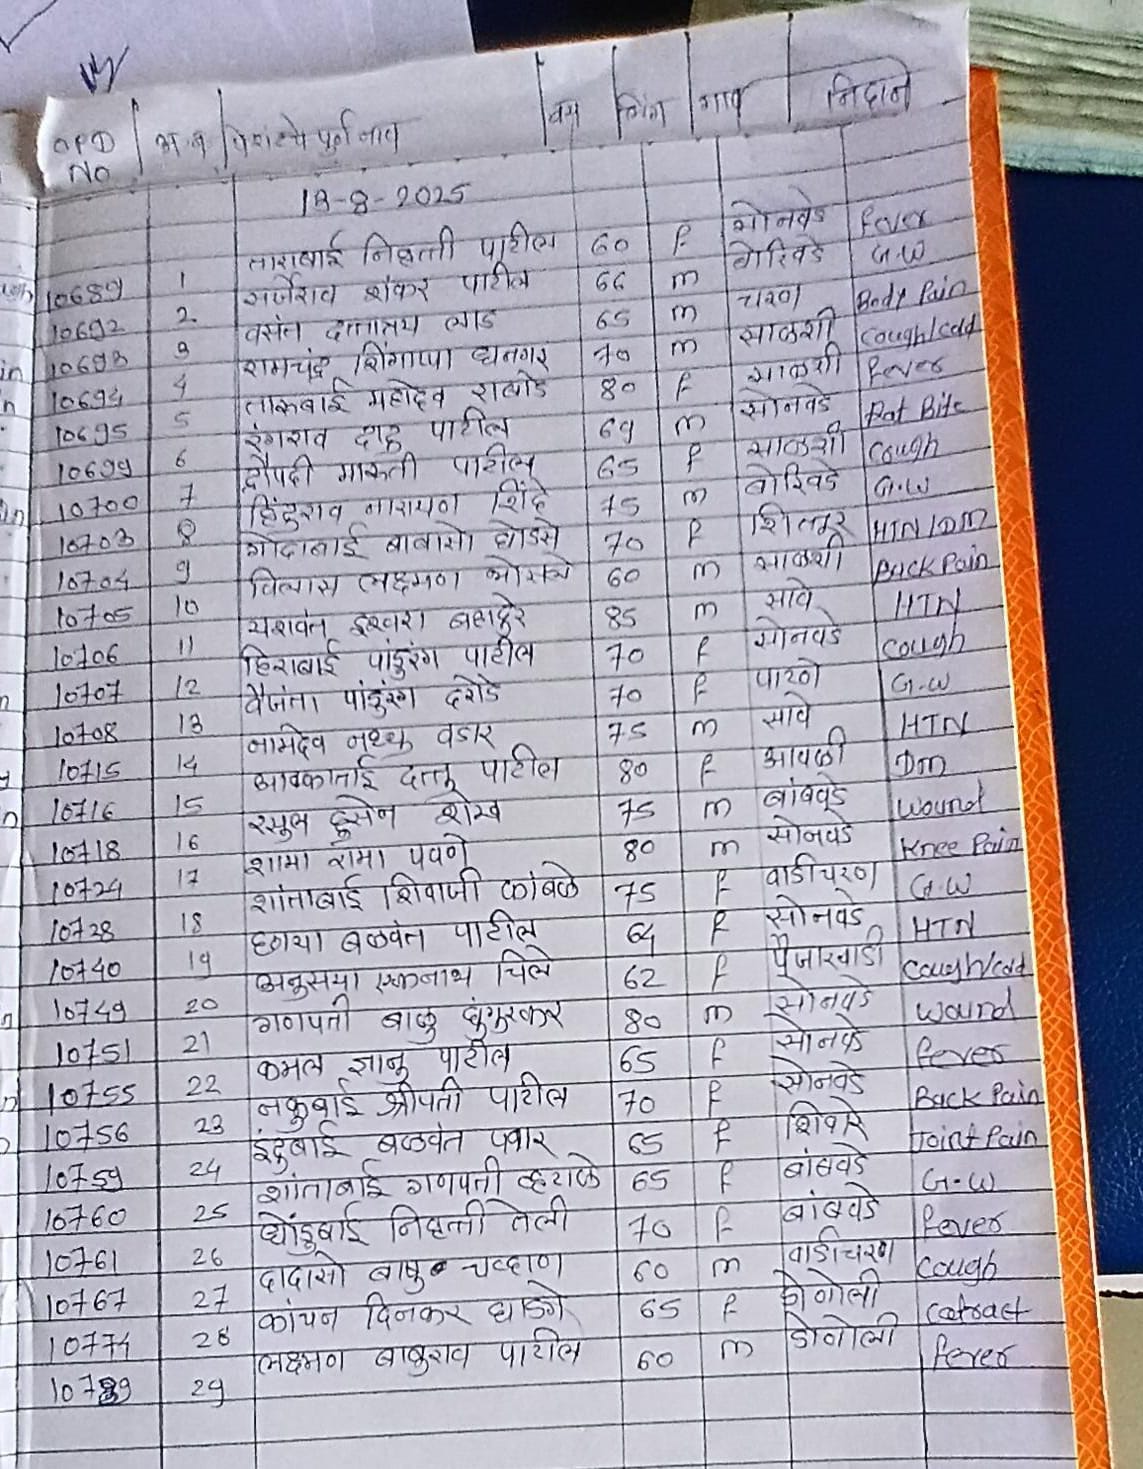 OPD No अ.न पेशंटचे पुर्ण नाव वय लिंग गाव निदान
18-8-2025
10689 1 ताराबाई निवृत्ती पाटील 60 F सोनवडे Fever
10692 2 सर्जेराव शंकर पाटील 66 m बोरिवडे G.W
10693 3 वसंत दत्तात्रय लाड 65 m चरण Body Pain
10694 4 रामचंद्र शिंगाप्पा धनगर 70 m साळशी Cough/Cold
10695 5 ताराबाई महादेव राठोड 80 F साळशी Fever
10699 6 रंगराव दादु पाटील 69 m सोनवडे Rat Bite
10700 7 द्रौपदी मारुती पाटील 65 F साळशी Cough
10703 8 हिंदुराव नारायण शिंदे 75 m बोरिवडे G.W
10704 9 गोदाबाई बाबासो घोडसे 70 F शित्तूर HTN/DM
10705 10 विलास लक्ष्मण भोसले 60 m साळशी Back Pain
10706 11 यशवंत ईश्वरा बहादुरे 85 m सावे HTN
10707 12 हिराबाई पांडुरंग पाटील 70 F सोनवडे Cough
10708 13 वैजंता पांडुरंग दरोडे 70 F पारणे G.W
10715 14 नामदेव नथ्थु वडार 75 m सावे HTN
10716 15 आक्काताई दत्तू पाटील 80 F आवळी Dm
10718 16 रसुल हुसेन शेख 75 m बांबवडे Wound
10724 17 शामा रामा पवणे 80 m सोनवडे Knee Pain
10728 18 शांताबाई शिवाजी कांबळे 75 F वाडीचरण G.W
10740 19 छाया बळवंत पाटील 64 F सोनवडे HTN
10749 20 अनुसया एकनाथ चिले 62 F पैजारवाडी Cough/Cold
10751 21 गणपती बाळु घुंगुरकर 80 m सोनवडे Wound
10755 22 कमल ज्ञानू पाटील 65 F सोनवडे Fever
10756 23 नकुबाई श्रीपती पाटील 70 F सोनवडे Back Pain
10759 24 इंदुबाई बळवंत पवार 65 F शिवारे Joint Pain
10760 25 शांताबाई गणपती व्हराळे 65 F बांबवडे G.W
10761 26 धोंडुबाई निवृत्ती तेली 70 F बांबवडे Fever
10767 27 दादासो बापु चव्हाण 60 m वाडीचरण Cough
10774 28 कांचन दिनकर घाडगे 65 F गोगोली Catract
10789 29 लक्ष्मण बाबुराव पाटील 60 m डोणोली Fever